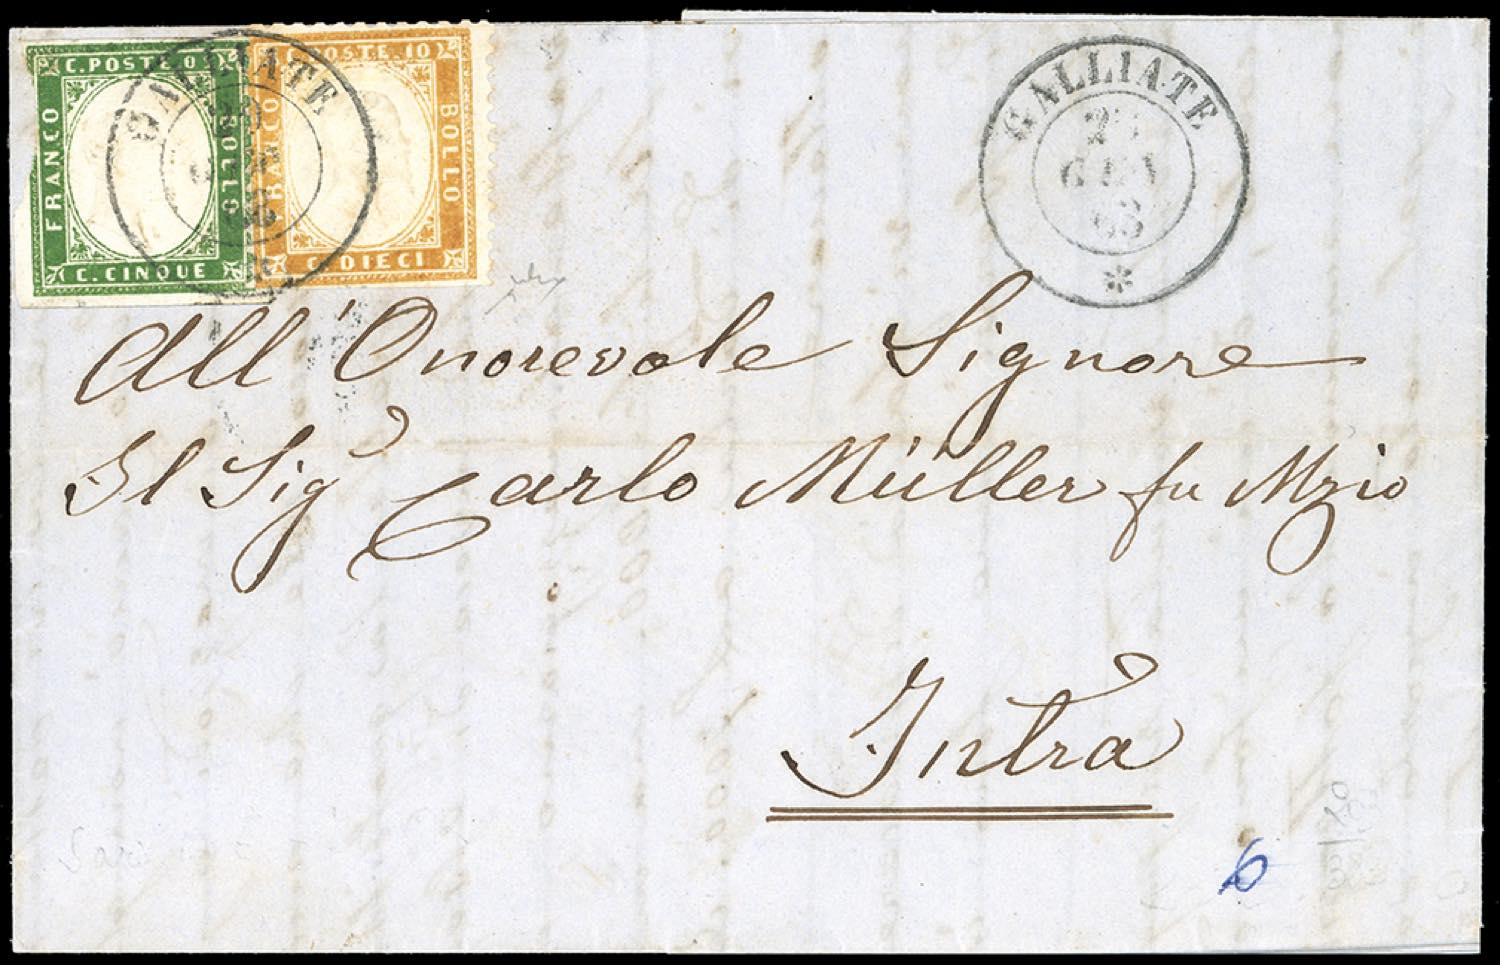 C. POSTE
FRANCO
BOLLO
C. CINQUE
C. POSTE. 10
FRANCO
BOLLO
C. DIECI
GALLIATE
GALLIATE
GEN
63
All' Onorevole Signore
Il Sigr Carlo Müller fu
Intra
6